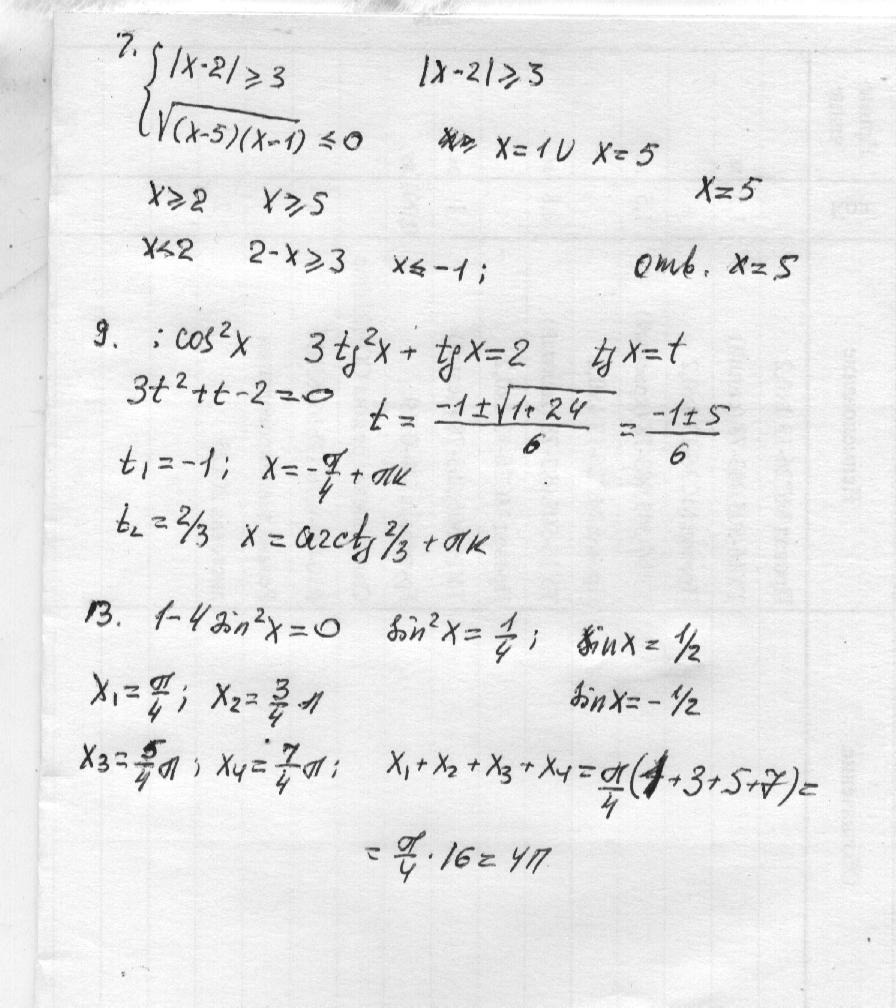 7. { |x-2| ⩾ 3 |x-2| ⩾ 3
√(x-5)(x-1) ≤ 0 x=1 ∪ x=5
x=5
x⩾2 x⩾5
x<2 2-x⩾3 x≤-1; отв. x=5
9. : cos²x 3tg²x + tgx=2 tgx=t
3t²+t-2=0 t = (-1±√(1+24))/6 = (-1±5)/6
t₁=-1; x=-π/4+πк
t₂=2/3 x=arctg 2/3 + πк
13. 1-4sin²x=0 sin²x=1/4; sinx=1/2
x₁=π/4; x₂=3/4 π sinx=-1/2
x₃=5/4π; x₄=7/4π; x₁+x₂+x₃+x₄=π/4(1+3+5+7)=
= π/4 · 16 = 4π